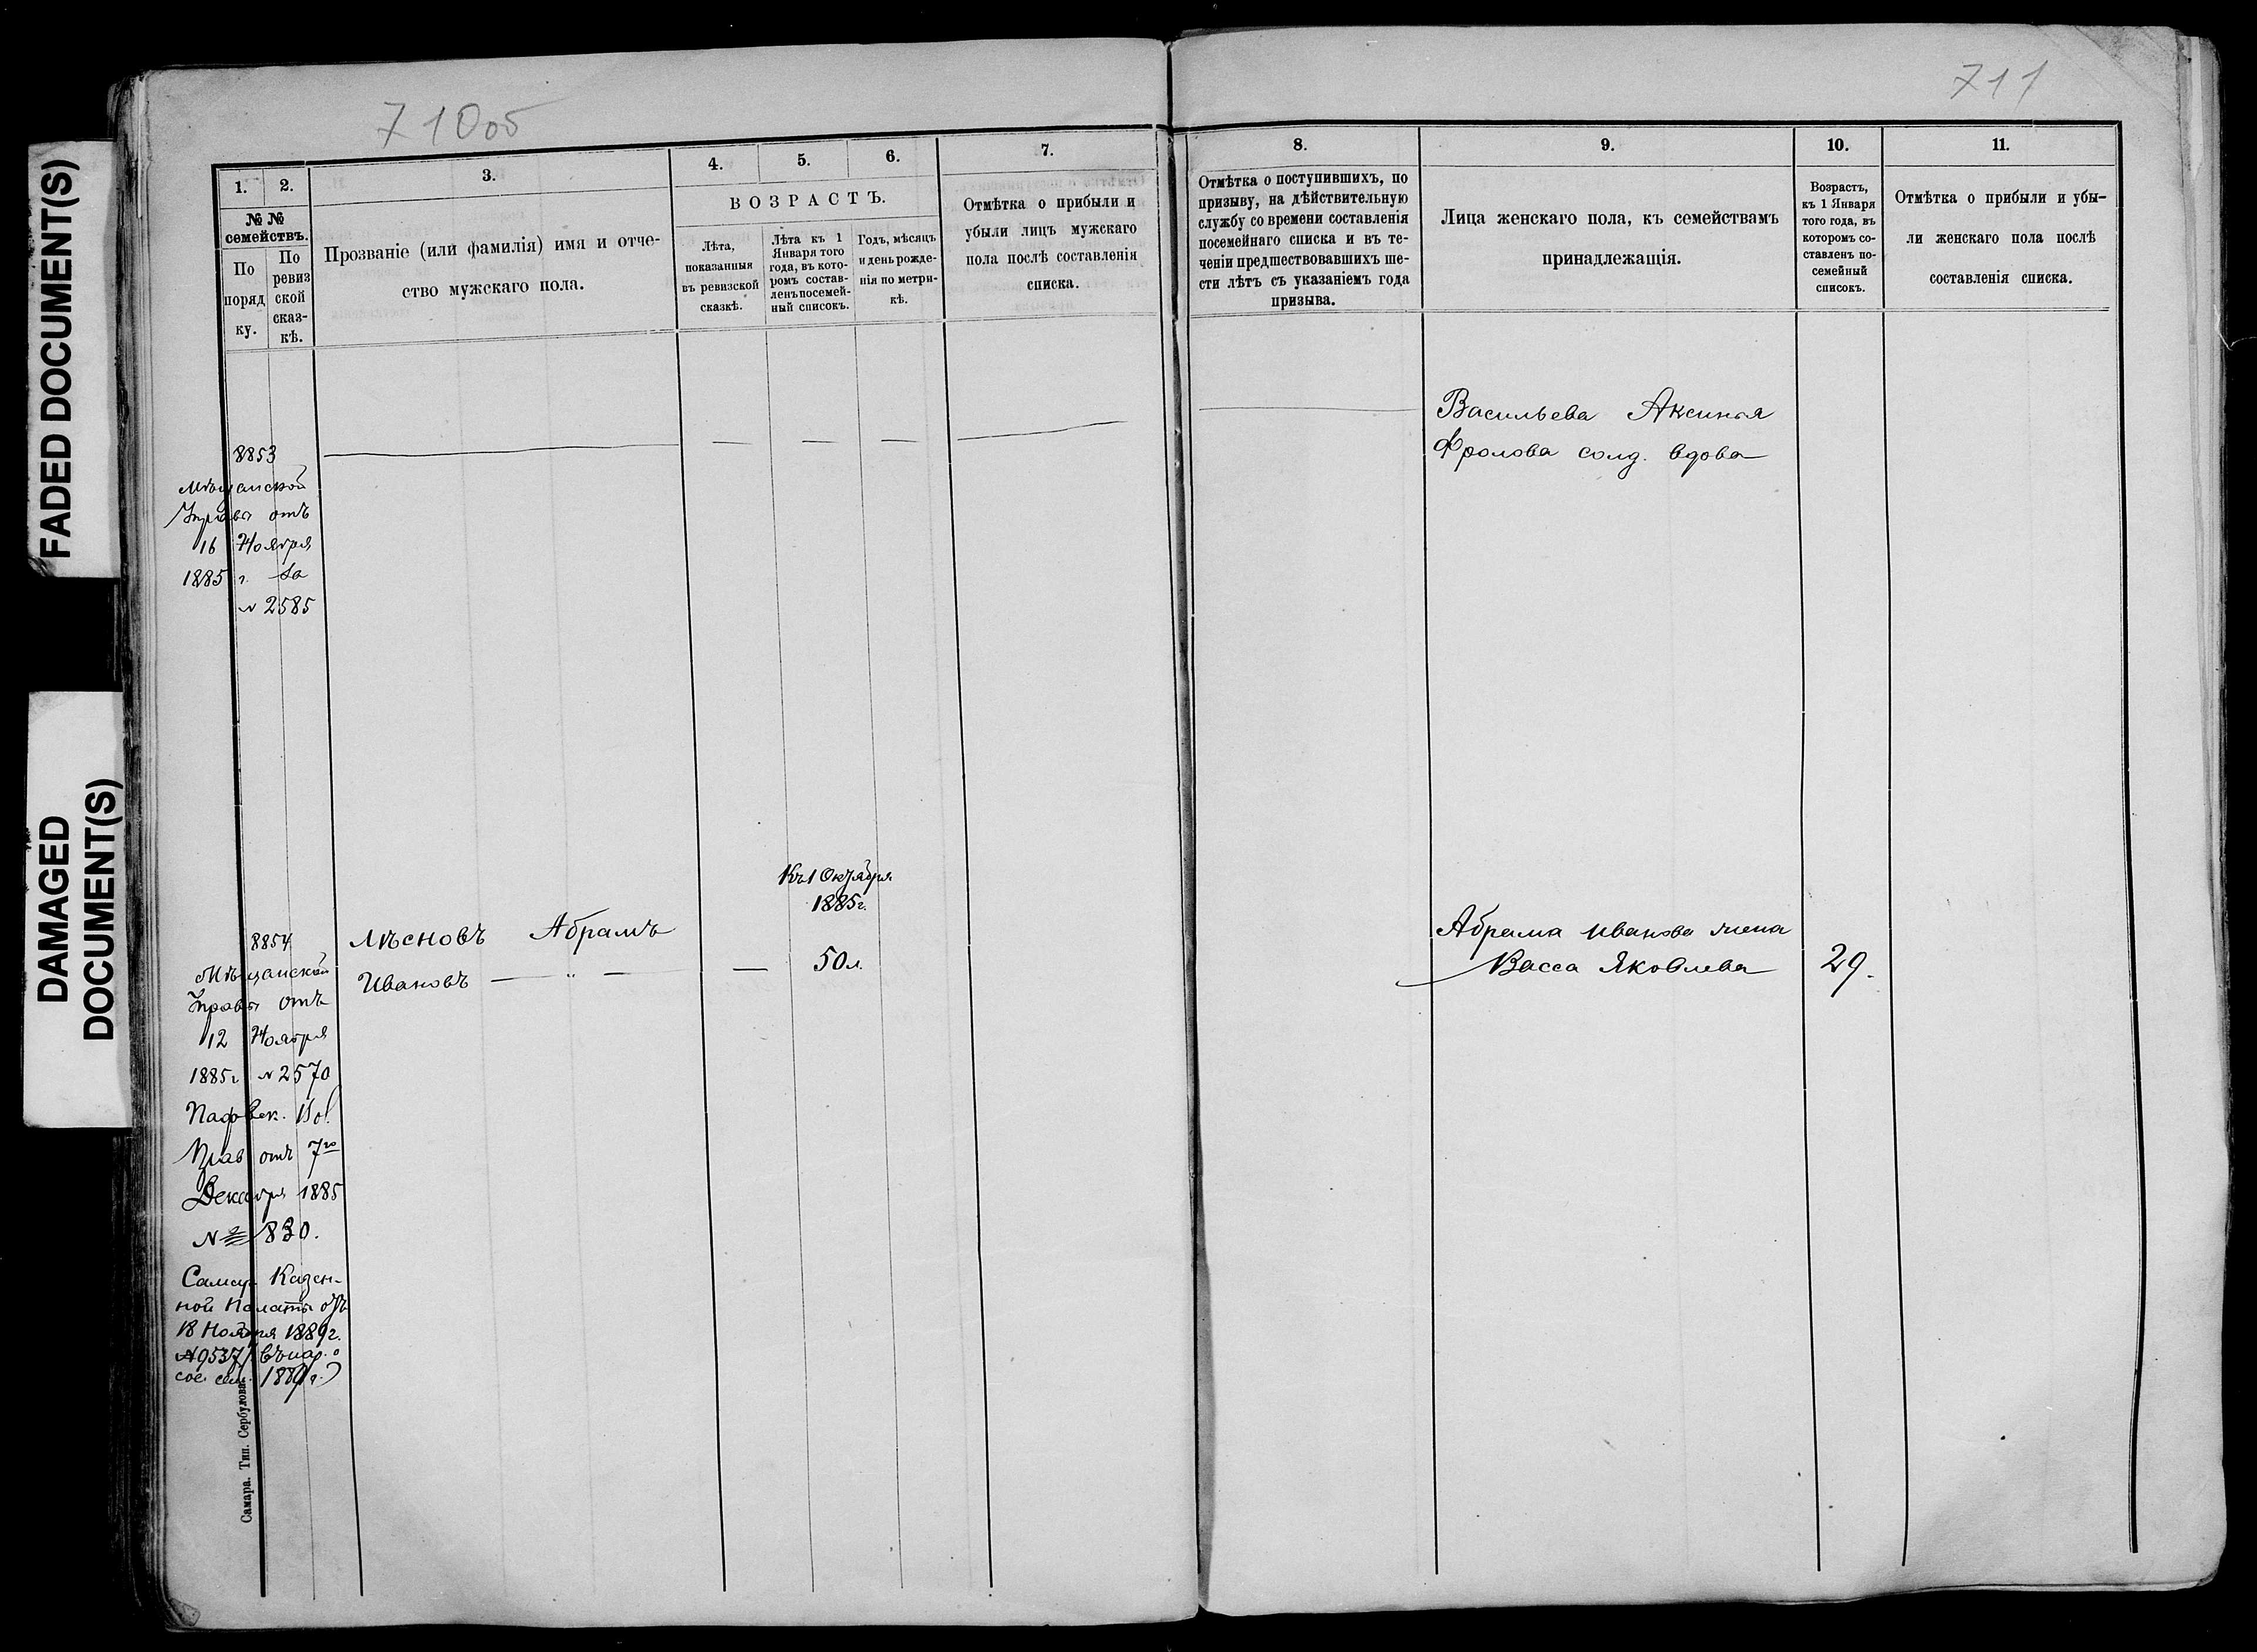 FADED DOCUMENT(S)
DAMAGED
DOCUMENT(S)
710об
711
1.
2.
3.
4.
5.
6.
7.
№ №
семействъ.
По
поряд
ку.
По
ревиз
ской
сказ-
кѣ.
Прозваніе (или фамилія) имя и отче-
ство мужскаго пола.
ВОЗРАСТЪ.
Лѣта,
показанныя
въ ревизской
сказкѣ.
Лѣта къ 1
Января того
года, въ кото-
ромъ состав-
ленъ посемей-
ный списокъ.
Годъ, мѣсяцъ
и день рожде-
нія по метри-
кѣ.
Отмѣтка о прибыли и
убыли лицъ мужскаго
пола послѣ составленія
списка.
8.
9.
10.
11.
Отмѣтка о поступившихъ, по
призыву, на дѣйствительную
службу со времени составленія
посемейнаго списка и въ те-
ченіи предшествовавшихъ ше-
сти лѣтъ съ указаніемъ года
призыва.
Лица женскаго пола, къ семействамъ
принадлежащія.
Возрастъ,
къ 1 Января
того года, въ
которомъ со-
ставленъ по-
семейный
списокъ.
Отмѣтка о прибыли и убы-
ли женскаго пола послѣ
составленія списка.
8853
Мѣщанской
Управы отъ
16 Ноября
1885 г. за
№ 2585
Васильева Аксинья
Фролова солд. вдова
Къ 1 Октября
1885 г.
8854
Мѣщанской
Управы отъ
12 Ноября
1885 г. № 2570
Вол.
Прав отъ 7го
Декабря 1885
№ 830.
Самар. Казен-
ной Палаты отъ
18 Ноября 1889 г.
№ 9537
1889 г.)
Лѣсновъ Абрамъ
Ивановъ — „ —
— 50 л.
Абрама Иванова жена
Васса Яковлева
29.
Самара. Тип. Сербулова.